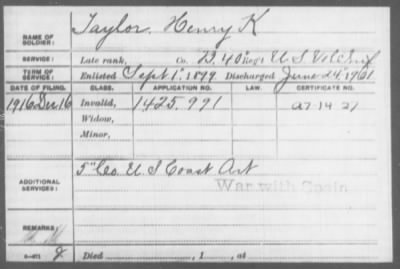 NAME OF SOLDIER: Taylor, Henry K
SERVICE: Late rank, Co. B, 40" Reg't U S Vol Inf
TERM OF SERVICE: Enlisted Sept 1, 1899, Discharged June 24, 1901
DATE OF FILING. CLASS. APPLICATION NO. LAW. CERTIFICATE NO.
1916 Dec 16 Invalid, 1425.991
Widow,
Minor,
ADDITIONAL SERVICES: 5" Co. U S Coast Art
War with Spain
REMARKS:
Died , 1 , at